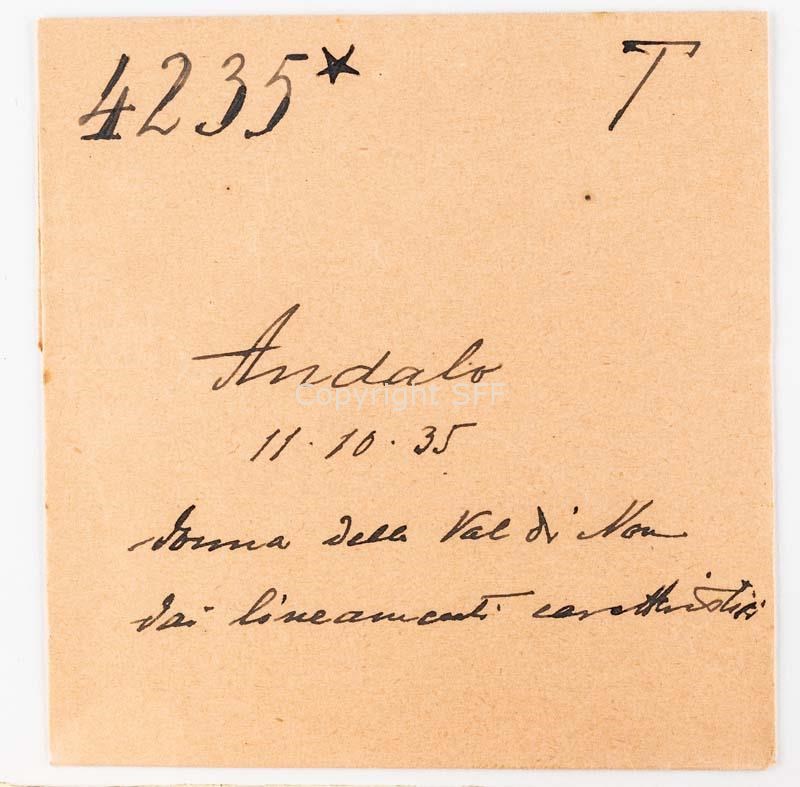 4235* T
Andalo
Copyright SFF
11.10.35
donna della Val di Non
dai lineamenti caratteristici